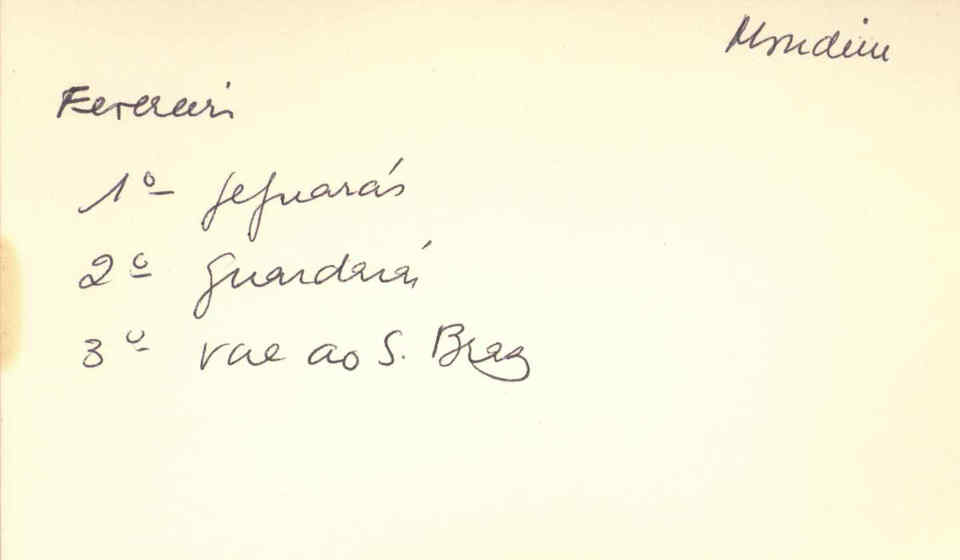 Mondim
Fevereiro
1º jejuarás
2º guardarás
3º vae ao S. Braz